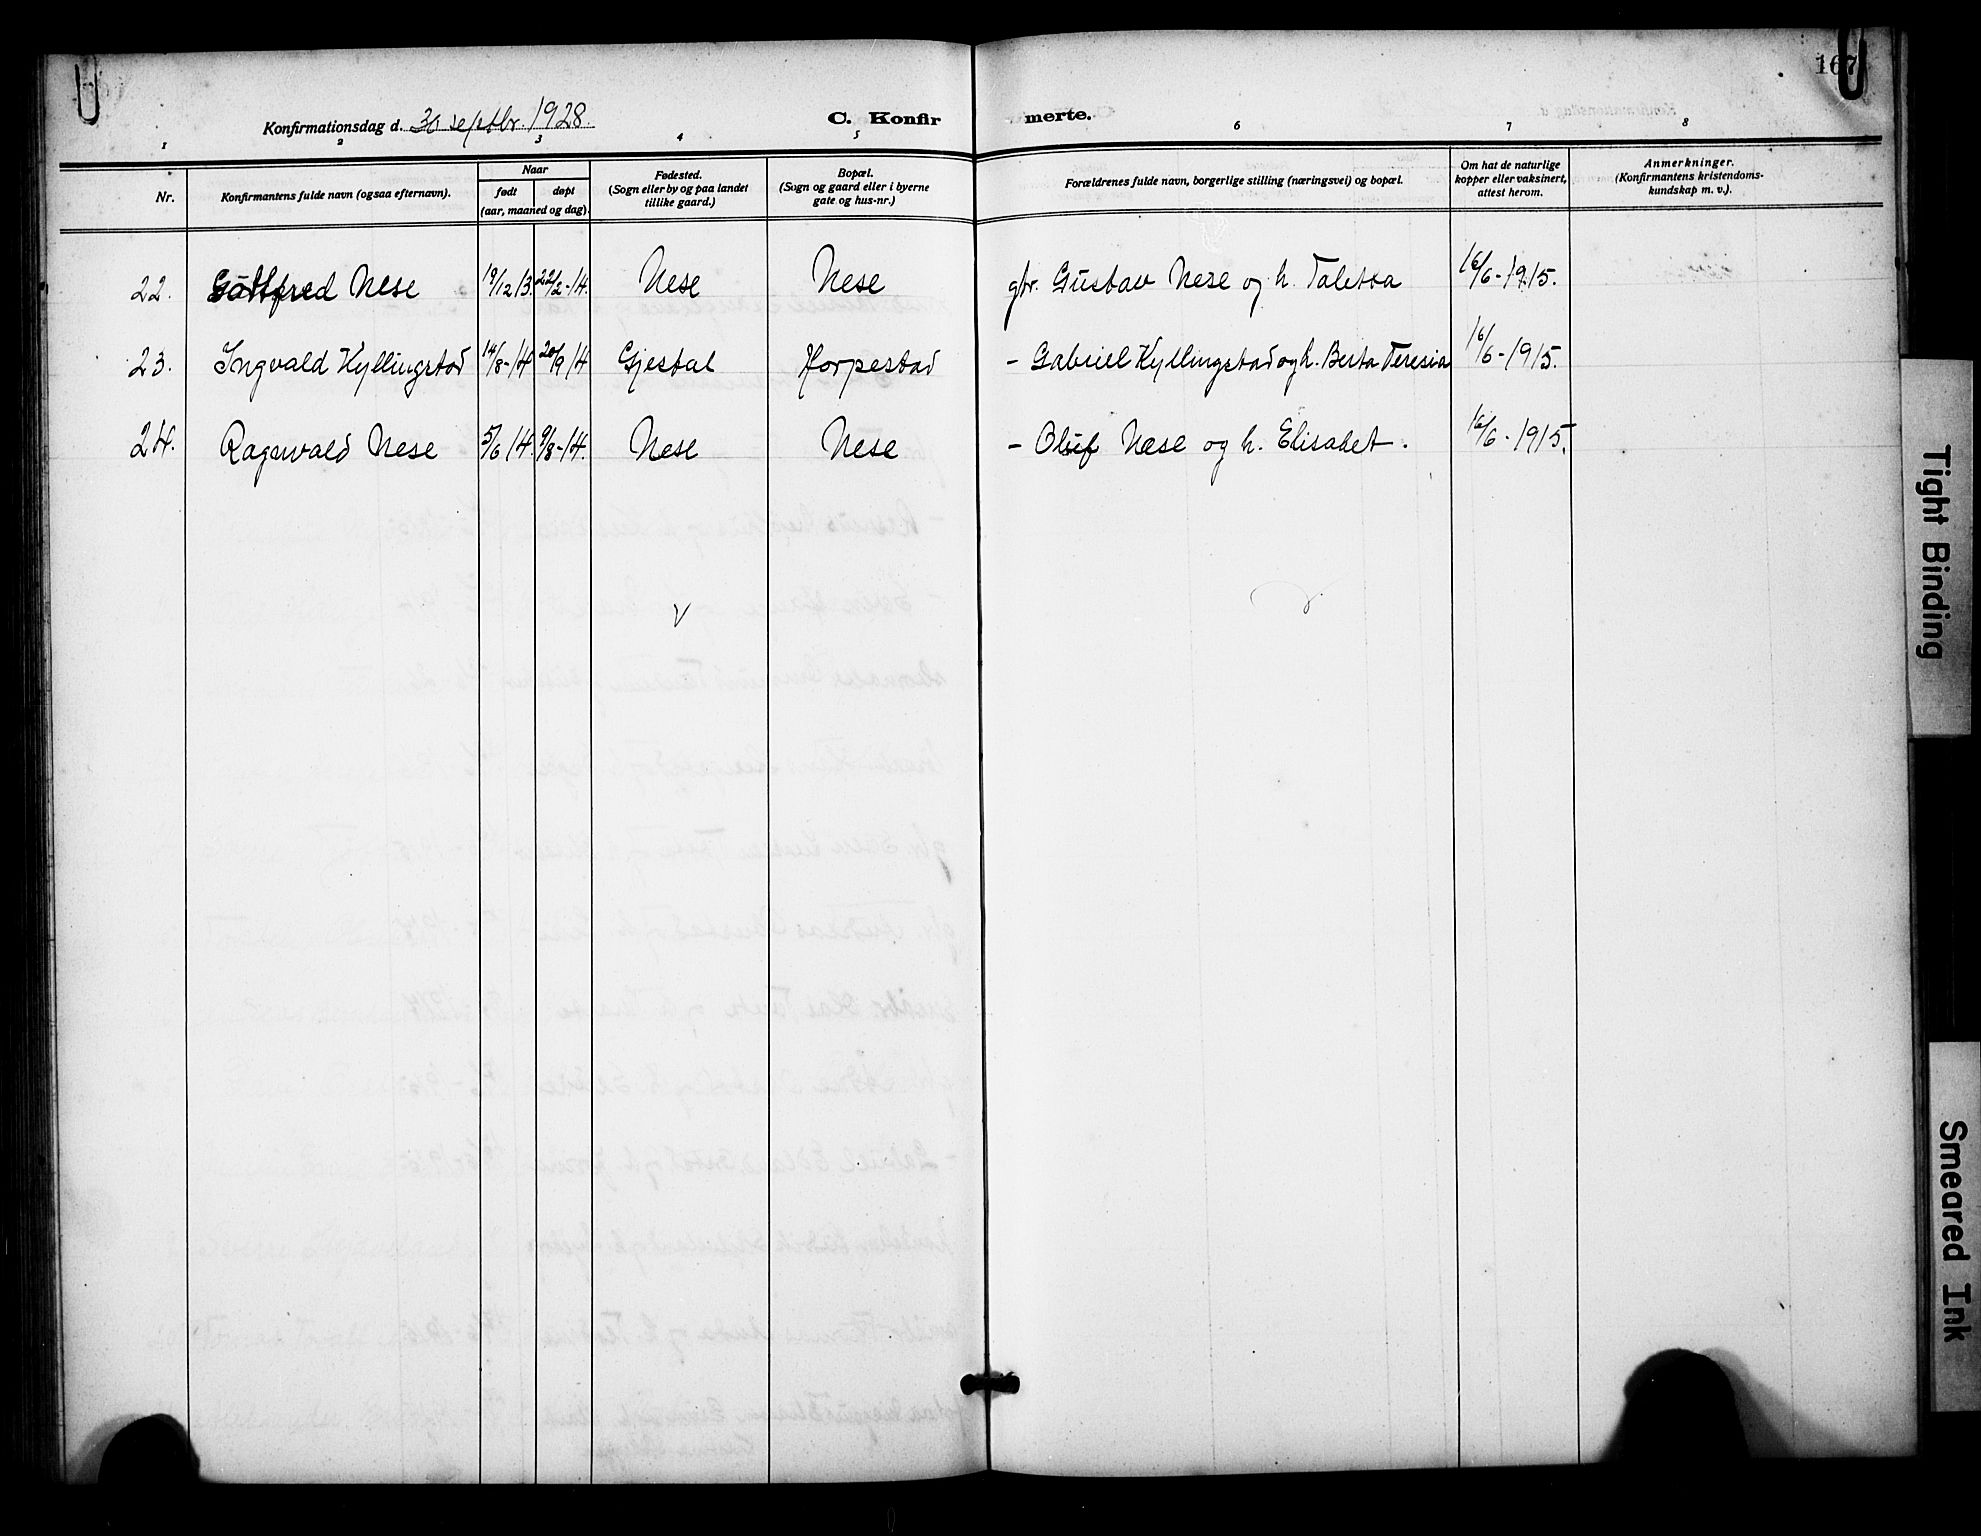 167
Konfirmationsdag d. 30 septbr. 1928.
C. Konfir merte.
1 2 3 4 5 6 7 8
Nr.
Konfirmantens fulde navn (ogsaa efternavn).
Naar
født
døpt
(aar, maaned og dag).
Fødested.
(Sogn eller by og paa landet
tillike gaard.)
Bopæl.
(Sogn og gaard eller i byerne
gate og hus-nr.)
Forældrenes fulde navn, borgerlige stilling (næringsvei) og bopæl.
Om hat de naturlige
kopper eller vaksinert,
attest herom.
Anmerkninger.
(Konfirmantens kristendoms-
kundskap m. v.).
22. Gottfred Nese 19/12 13. 22/2-14. Nese Nese gbr. Gustav Nese og h. Taletta 16/6-1915.
23. Ingvald Kyllingstad 14/8-14 20/9 14 Gjestal Horpestad - Gabriel Kyllingstad og h. Berta Teresia 16/6-1915.
24. Ragnvald Nese 5/6 14. 9/8-14. Nese Nese - Oluf Nese og h. Elisabet. 16/6-1915.
Tight Binding
Smeared Ink